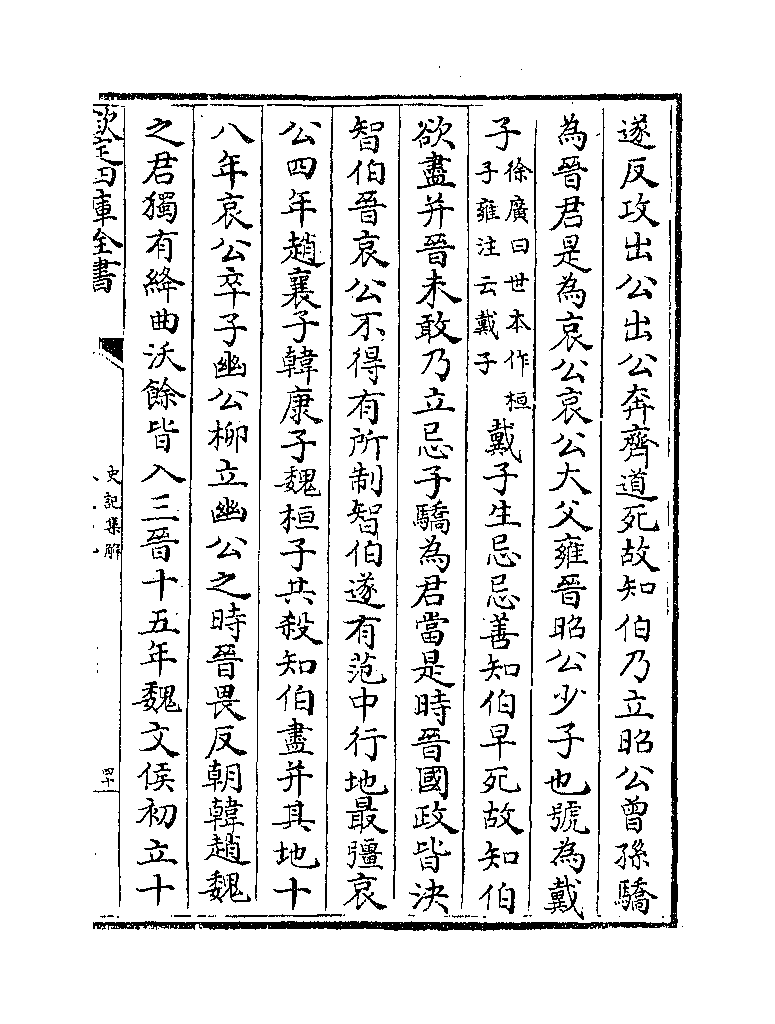 遂反攻出公出公奔齊道死故知伯乃立昭公曾孫驕
為晉君是為哀公哀公大父雍晉昭公少子也號為戴
子徐廣曰世本作桓子雍注云戴子戴子生忌忌善知伯早死故知伯
欲盡并晉未敢乃立忌子驕為君當是時晉國政皆決
智伯晉哀公不得有所制智伯遂有范中行地最彊哀
公四年趙襄子韓康子魏桓子共殺知伯盡并其地十
八年哀公卒子幽公柳立幽公之時晉畏反朝韓趙魏
之君獨有絳曲沃餘皆入三晉十五年魏文侯初立十
欽定四庫全書
史記集解
四十